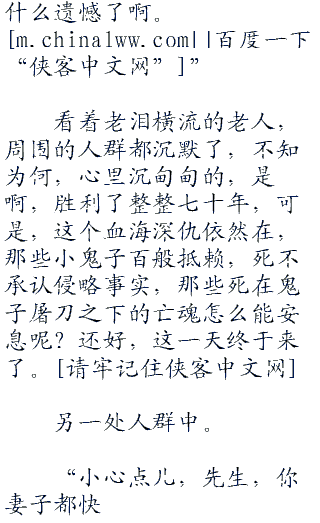 什么遗憾了啊。
[m.chinalww.com||百度一下
“侠客中文网”]”
看着老泪横流的老人，
周围的人群都沉默了，不知
为何，心里沉甸甸的，是
啊，胜利了整整七十年，可
是，这个血海深仇依然在，
那些小鬼子百般抵赖，死不
承认侵略事实，那些死在鬼
子屠刀之下的亡魂怎么能安
息呢？还好，这一天终于来
了。[请牢记住侠客中文网]
另一处人群中。
“小心点儿，先生，你
妻子都快